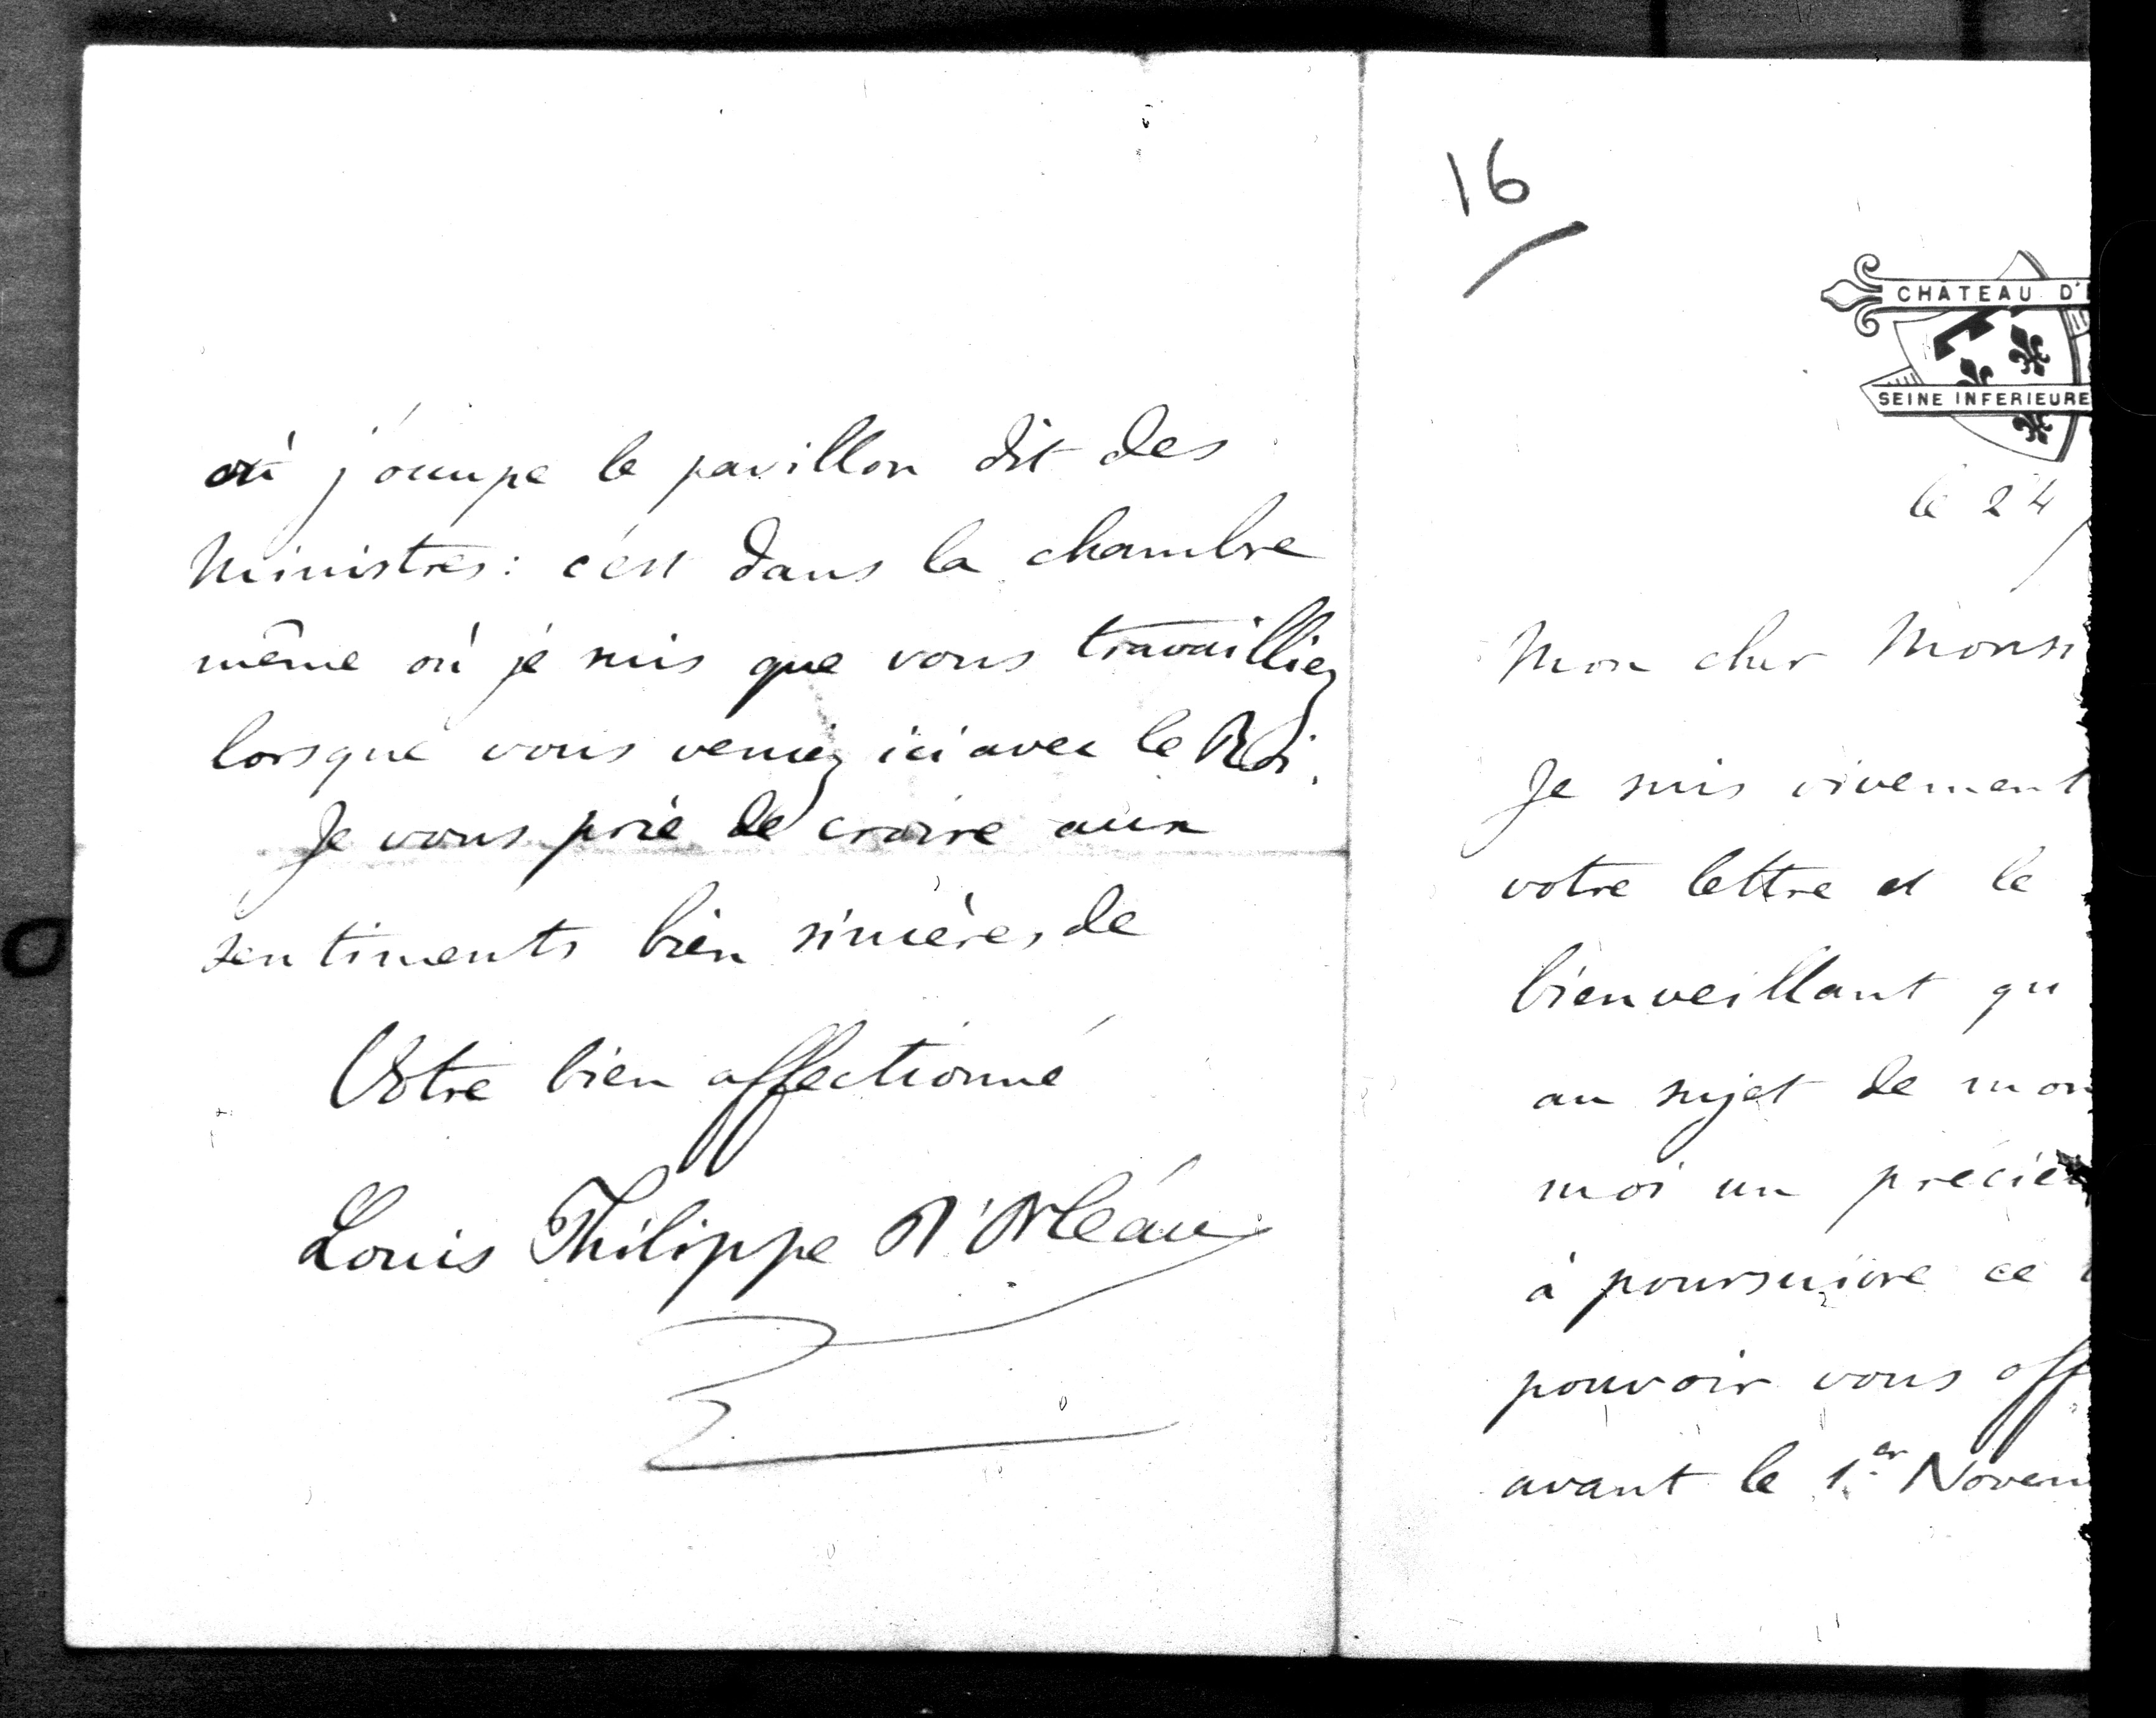 où j'occupe le pavillon dit des
Ministres: c'est dans la chambre
même où je suis que vous travailliez
lorsque vous veniez ici avec le Roi.
Je vous prie de croire aux
sentiments bien sincères de
Votre bien affectionné
Louis Philippe d'Orléans
16
CHÂTEAU D'
SEINE INFERIEURE
le 24
Mon cher Monsi
Je suis vivement
votre lettre et le
bienveillant qu
au sujet de mon
moi un précieu
à poursuivre ce
pouvoir vous off
avant le 1er Novem